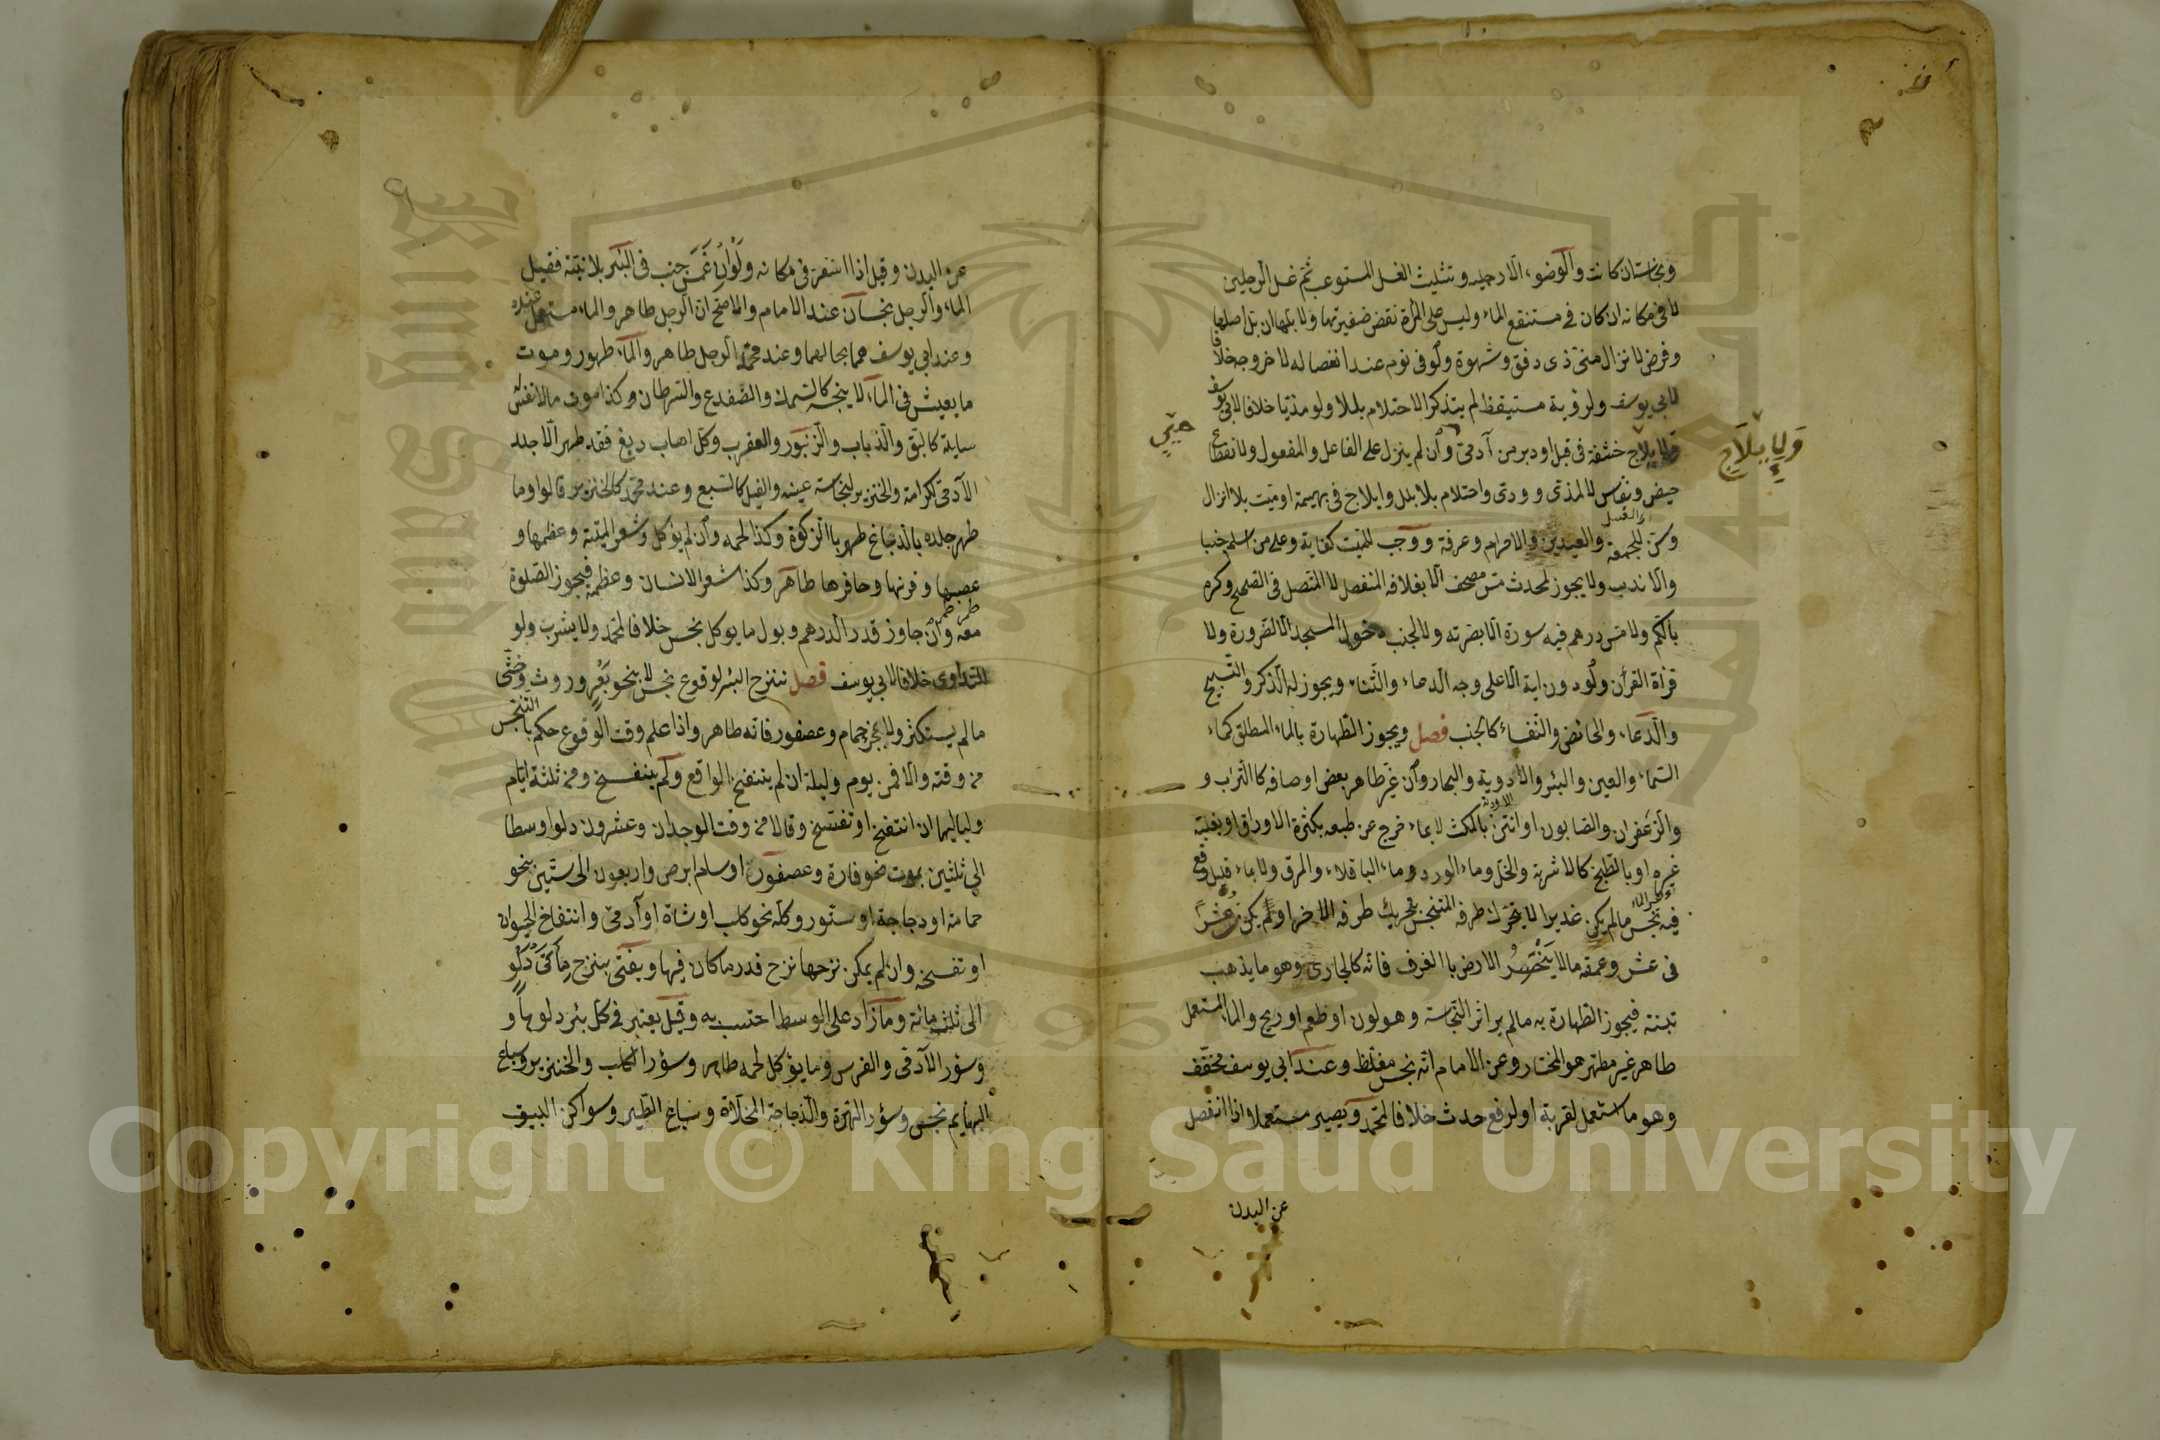 ونجاسة ان كانت والوضوء الا رجليه وتثليث الغسل المستوعب ثم غسل الرجلين
لا في مكانه ان كان في مستنقع الماء وليس على المرأة نقض ضفيرتها ولا بلها ان بل اصلها
وفرض لانزال منى ذى دفق وشهوة ولو فى نوم عند انفصاله لا خروجه خلافا
لابي يوسف ولرؤية مستيقظ لم يتذكر الاحتلام بللا ولو مذيا خلافا لابي يوسف
ولايلاج حشفة فى قبل او دبر من آدمى وان لم ينزل على الفاعل والمفعول ولانقطاع
ولايلاج
حيض ونفاس لا لمذى وودى واحتلام بلا بلل وايلاج فى بهيمة او ميت بلا انزال
وسن للجمعة والعيدين والاحرام وعرفة ووجب للميت كفاية وعلى من اسلم جنبا
والا ندب ولا يجوز لمحدث مس مصحف الا بغلافه المنفصل لا المتصل فى الصحيح وكره
بالكم ولا مس درهم فيه سورة الا بصرته ولا لجنب دخول المسجد الا لضرورة ولا
قراة القرآن ولو دون اية الا على وجه الدعاء والثناء ويجوز له الذكر والتسبيح
والدعاء والحائض والنفساء كالجنب فصل ويجوز الطهارة بالماء المطلق كماء
السماء والعين والبئر والاودية والبحار وان غير طاهر بعض اوصافه كالتراب و
والزعفران والصابون او انتن بالمكث لا بماء خرج عن طبعه بكثرة الاوراق او بغلبة
غيره او بالطبخ كالاشربة والخل وماء الورد وماء الباقلاء والمرق ولا بماء قليل وقع
فيه نجس مالم يكن غديرا لا يتحرك طرفه المتنجس بتحريك طرفه الاخر او لم يكن عشرا
فى عشر وعمقه مالا ينحسر الارض بالغرف فانه كالجارى وهو ما يذهب
تبنة فيجوز الطهارة به مالم ير اثر النجاسة وهو لون او طعم او ريح والماء المستعمل
طاهر غير مطهر هو المختار وعن الامام انه نجس مغلظ وعند ابى يوسف مخفف
وهو ما استعمل لقربة او لرفع حدث خلافا لمحمد ويصير مستعملا اذا انفصل
عن البدن
عن البدن وقيل اذا استقر فى مكانه ولو انغمس جنب فى البئر بلا نية فقيل
الماء والرجل نجسان عند الامام والاصح ان الرجل طاهر والماء مستعمل عنده
وعند ابي يوسف هما بحالهما وعند محمد الرجل طاهر والماء طهور وموت
ما يعيش فى الماء لا ينجسه كالسمك والضفدع والسرطان وكذا موت مالا نفس له
سايلة كالبق والذباب والزنبور والعقرب وكل اهاب دبغ فقد طهر الا جلد
الآدمى لكرامته والخنزير لنجاسة عينه والفيل كالسبع وعند محمد كالخنزير قالوا وما
طهر جلده بالدباغ طهر بالزكوة وكذا لحمه وان لم يؤكل وشعر الميتة وعظمها و
عصبها وقرنها وحافرها طاهر وكذا شعر الانسان وعظمه فيجوز الصلوة
معه وان جاوز قدر الدرهم وبول ما يوكل نجس خلافا لمحمد ولا يشرب ولو
للتداوى خلافا لابي يوسف فصل تنزح البئر لوقوع نجس لا بنحو بعر وروث وخثى
مالم يستكثر ولا بخرء حمام وعصفور فانه طاهر واذا علم وقت الوقوع حكم بالتنجس
من وقته والا فمن يوم وليلة ان لم ينتفخ الواقع ولم يتفسخ ومن ثلثة ايام
ولياليها ان انتفخ او تفسخ وقالا من وقت الوجدان وعشرون دلوا وسطا
الى ثلثين بموت نحو فارة وعصفور او سام ابرص واربعون الى ستين بنحو
حمامة او دجاجة او سنور وكله نحو كلب او شاة او آدمى وانتفاخ الحيوان
او تفسخه وان لم يمكن نزحها نزح قدر ما كان فيها ويفتى بنزح مأتى دلو
الى ثلث مائة وما زاد على الوسط احتسب به وقيل يعتبر فى كل بئر دلوها و
وسؤر الآدمى والفرس وما يؤكل لحمه طاهر وسؤر الكلب والخنزير وسباع
البهايم نجس وسؤر الهرة والدجاجة المخلاة وسباع الطير وسواكن البيوت
Copyright © King Saud University